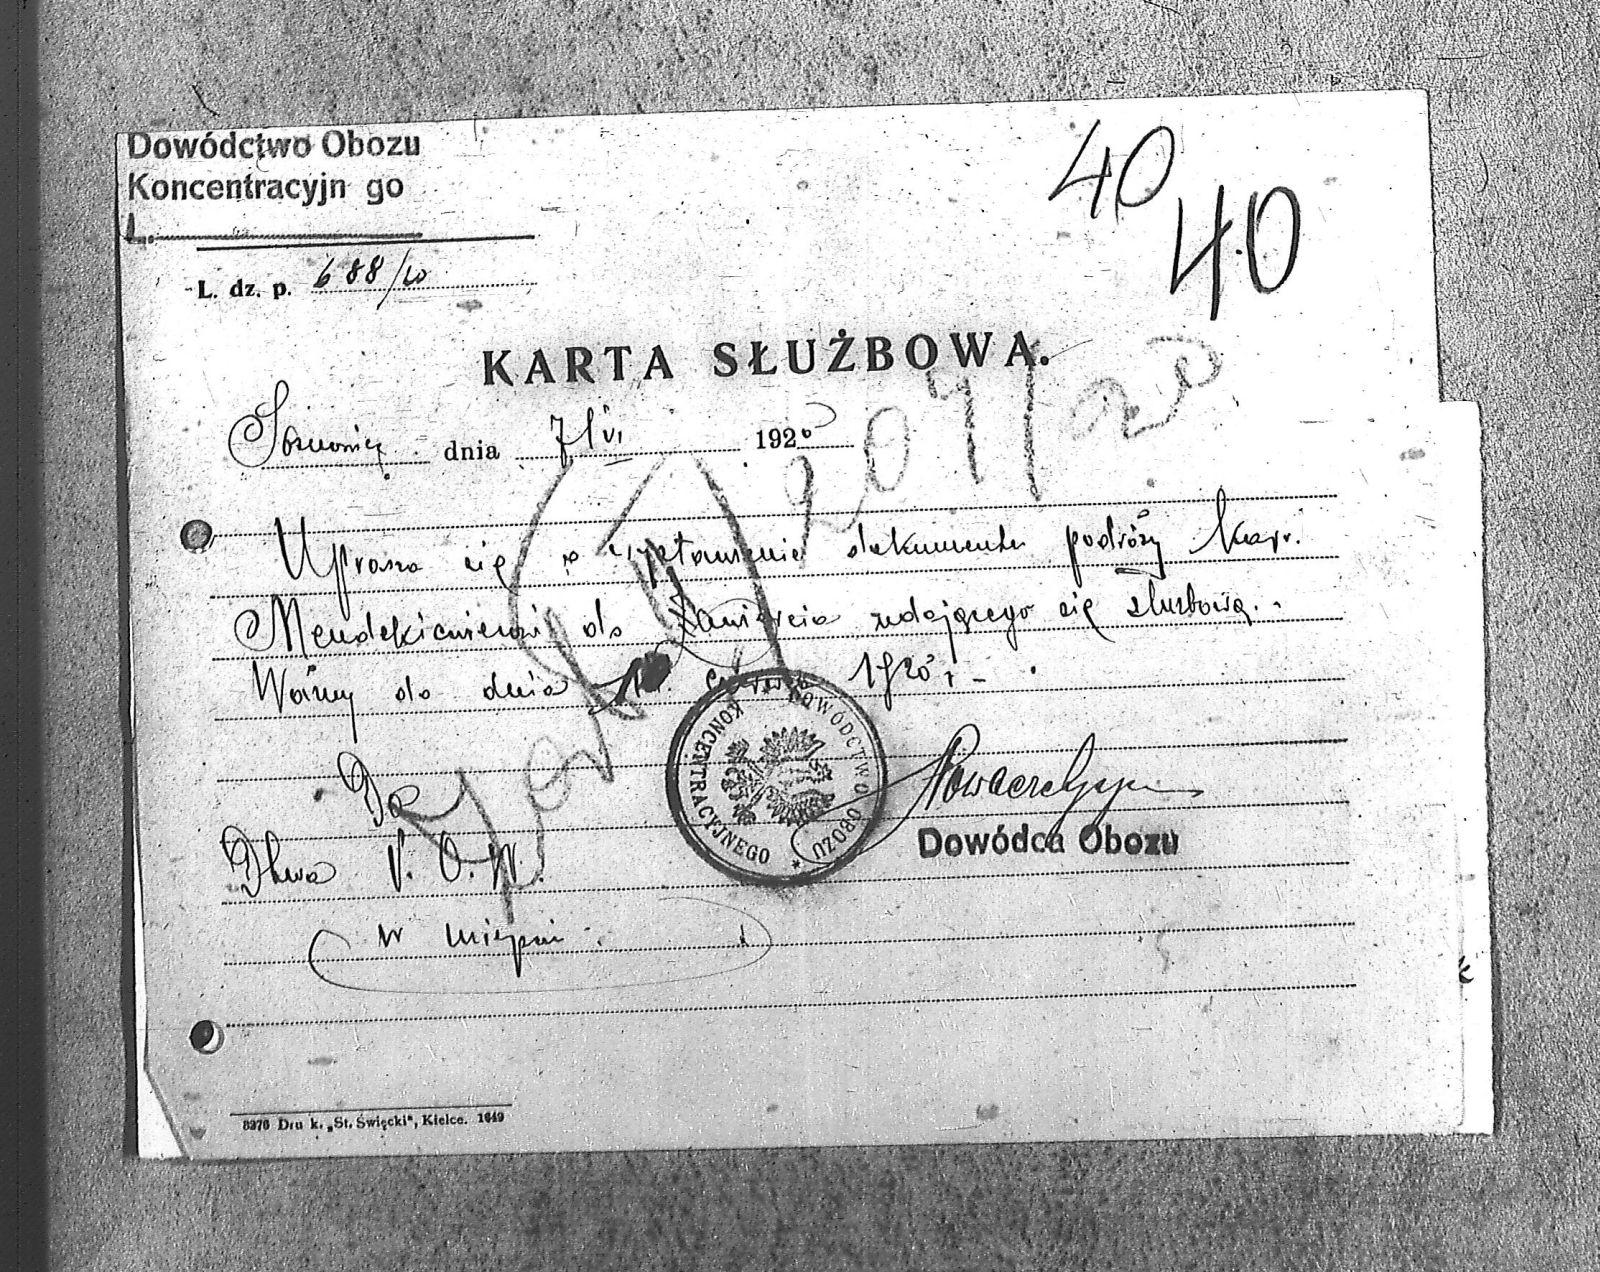 Dowództwo Obozu
Koncentracyjn go
L.
40
40
L. dz. p. 688/20
KARTA SŁUŻBOWA.
Sosnowiec dnia 7/VI 1920
207/20
Uprasza się o wystawienie dokumentu podróży kapr.
do Zawiercia udającego się służbowo.
Ważny do dnia czerwca 1920 r. -
DOWÓDCTWO OBOZU KONCENTRACYJNEGO *
Do
Dtwa P. O. W.
w miejscu
Dowódca Obozu
8376 Dru k. „St. Święcki", Kielce. 1649